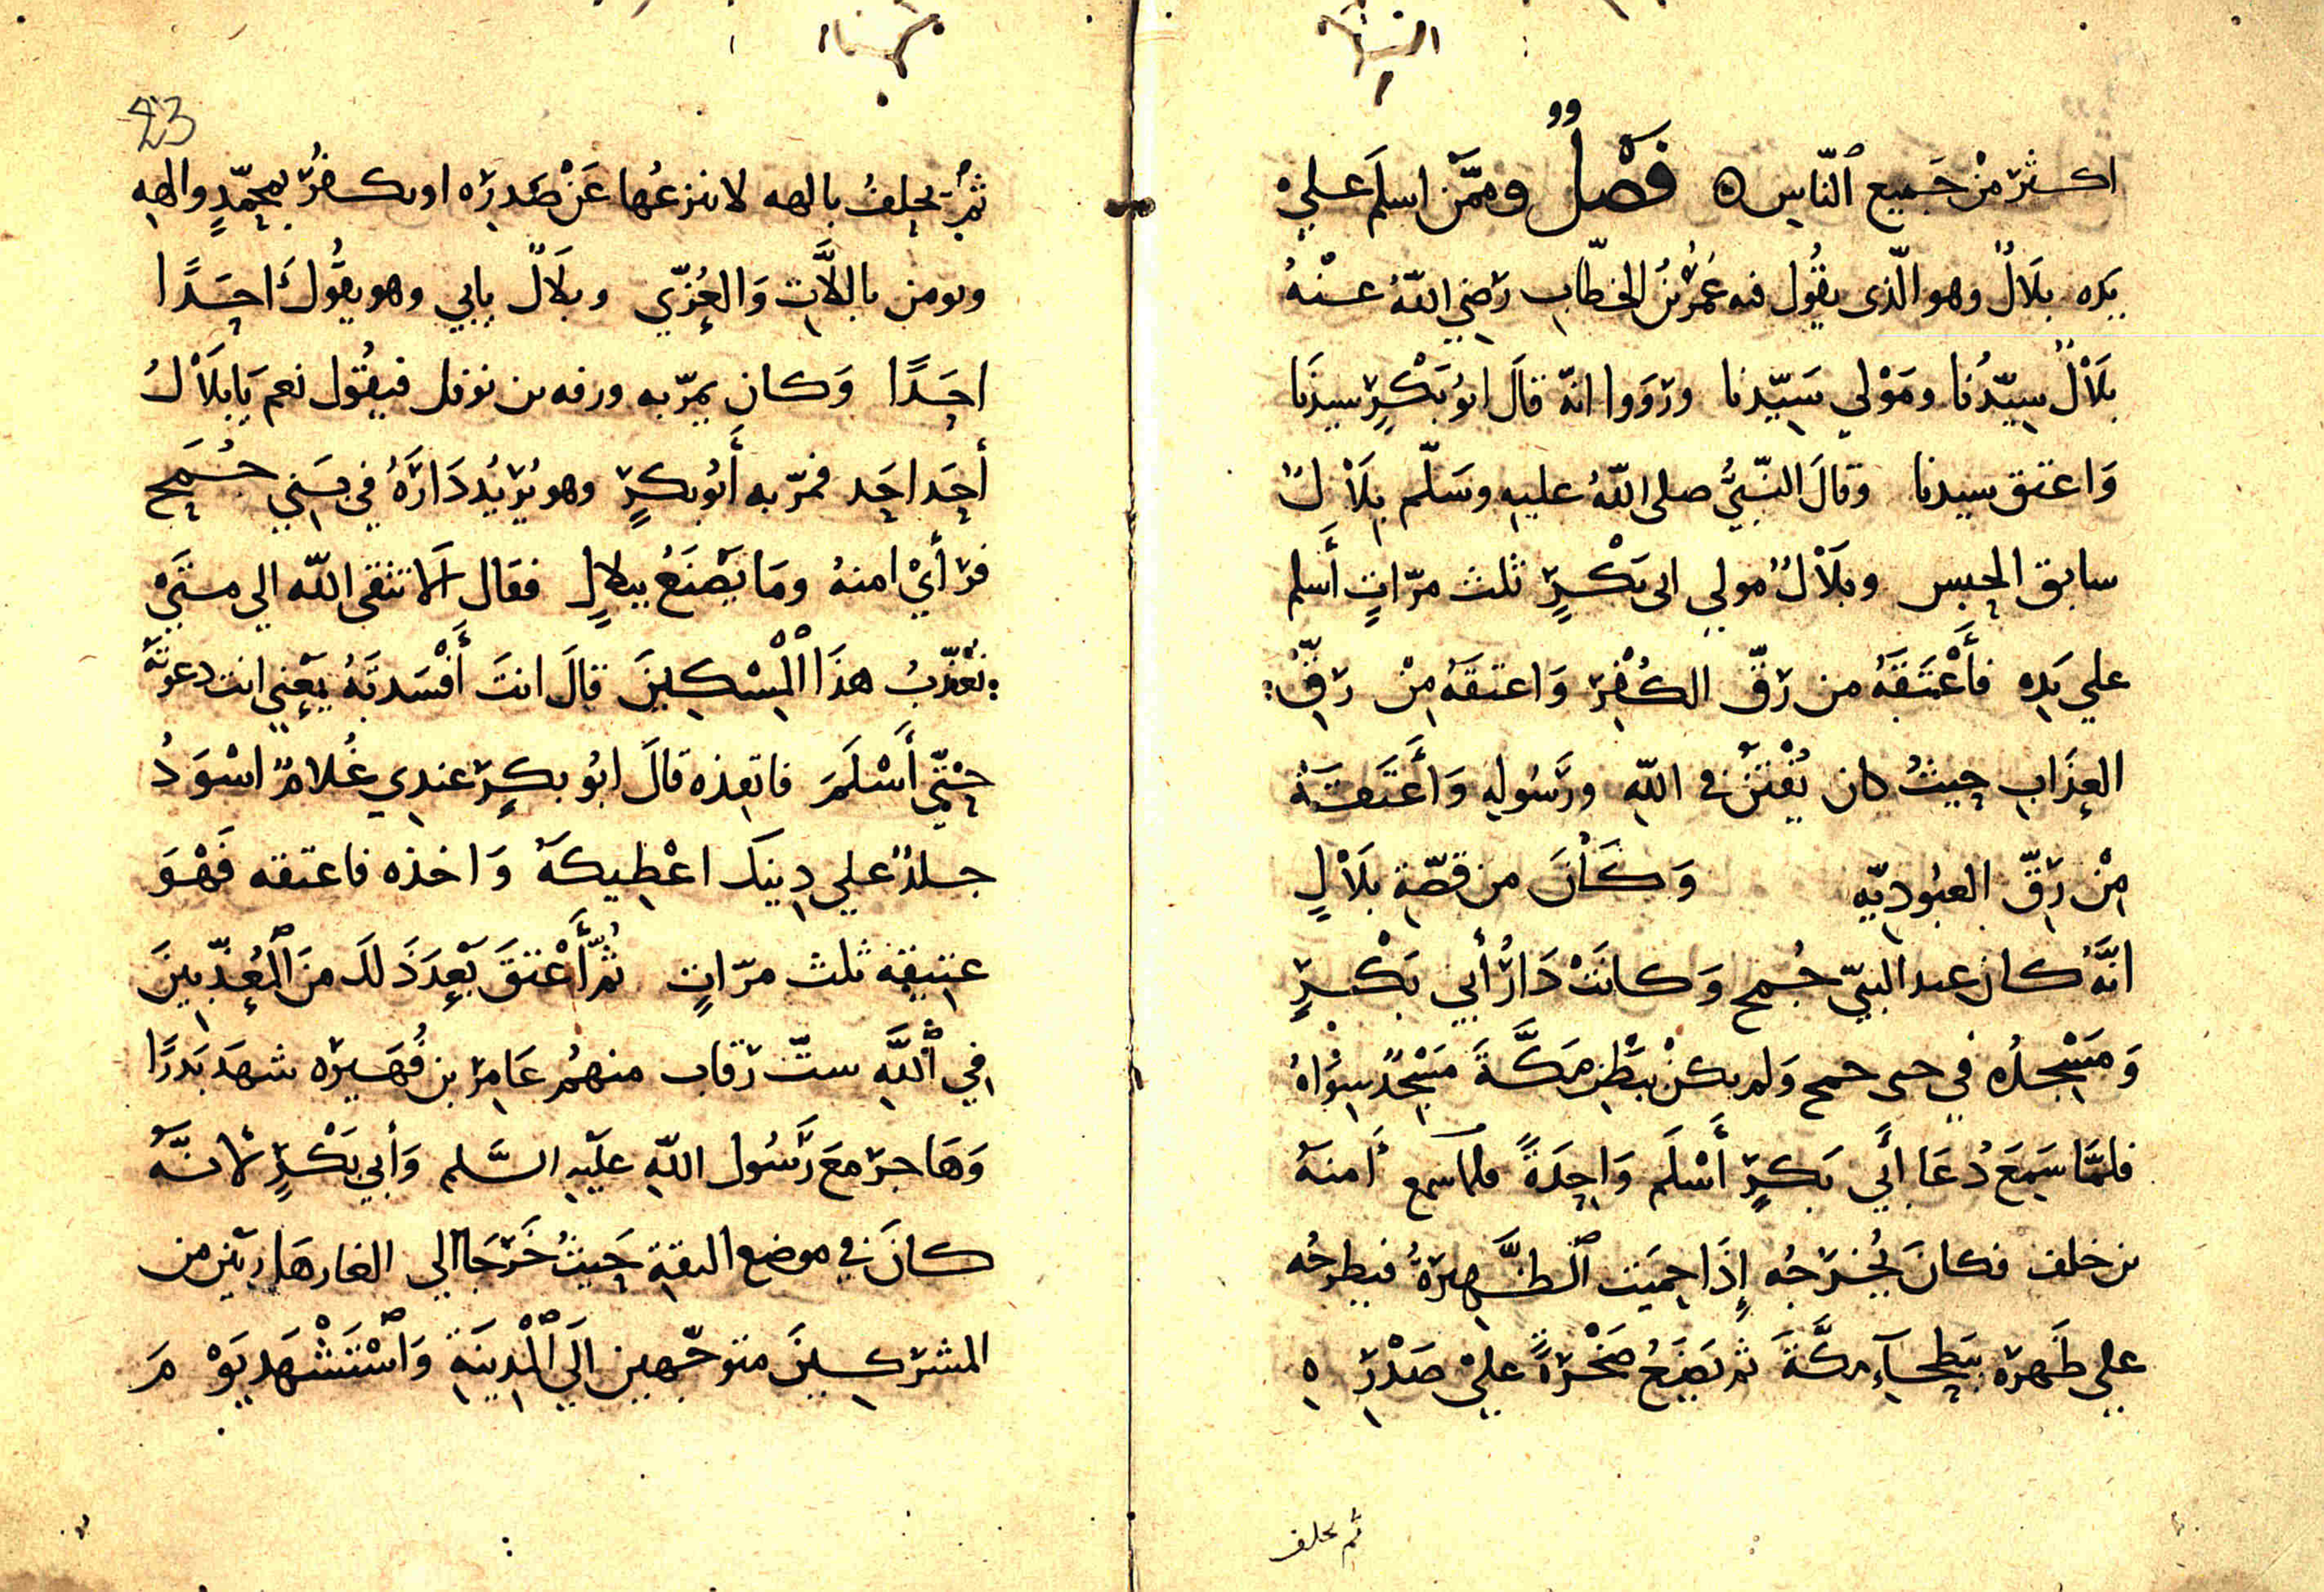 اكثر من جَميع ٱلنّاس ه فَصْلٌ وممّن اسلَم عَلي
يَدِه بلَالٌ وهو الّذى يقُول فيه عُمَرُ بنُ الخطّابِ رَضي اللّهُ عَنْهُ
بلَالٌ سيّدُنا ومَوْلي سَيّدنا ورَوَوا انهّ قالَ ابُو بَكْرٍ سيدنَا
وَاعتق سيدنا وقالَ النّبيُّ صلى اللّهُ عليه وسَلّم بِلَالٌ
سابق الحبس وبلَالٌ مولي ابى بَكْرٍ ثلث مرّاتٍ أَسلم
علي يَدِه فأَعْتَقَهُ من رقّ الكُفْرِ وَاعتقَهُ مِنْ رِقِّ
العذَابِ حيثُ كان يُفْتَنُ في اللّهِ ورَسُولِهِ وَأَعتَقَهُ
مِنْ رِقِّ العبُوديّهِ وَكَانَ من قصّةِ بلَالٍ
انَّهُ كان عبد البنيّ جُمح وَكانَتْ دَارُ أبي بَكْرٍ
وَمَسْجدُه في حى جمح وَلم يكنْ ببَطْنِ مَكَّةَ مَسْجدٌ سِوَاهُ
فلمَّا سَمِعَ دُعَا أَبي بَكرٍ أَسْلَم وَاحِدَةً فلما سمع أَمنه
بن خلف فكانَ يُخْرَجُه إِذَا حميَت ٱلظَّهيرَةُ فيطرحُه
علي ظَهره ببَطحآءِ مكَّةَ ثم يَضَعُ صَخْرَةً عليْ صَدْرِهِ
ثم يحلف
23
ثُمّ يحلِفُ بالهه لا ينزعُها عَنْ صَدرِه او يكفُرُ بمحمّدٍ والههِ
ويومن باللَّاتِ وَالعُزّي وبلَالٌ يابي وهو يقُولُ احَدًا
احَدًا وَكان يمرّ به ورقه بن نوفل فيقُول نعم يَا بلَالُ
أحَد احَد فمرّ به أَبُو بكرٍ وهو يُريُد دَارَهُ في بَني جُمَح
فرأيْ امنهُ ومَا يَصْنَعُ ببلالٍ فقال اَلا تتقى اللّه الي متَيْ
تُعَذّبُ هذَا ٱلْمِسْكِينَ قالَ انتَ أَفْسَدتَهُ يَعْني انت دعوتَهُ
حتّي أَسْلَمَ فانقذه قالَ ابُو بكرٍ عندي غُلامٌ اسْوَدُ
جلدٌ علي دِينِكَ اعْطيكهُ وَاخذه فاعتقه فَهْوَ
عتيقهُ ثلث مرّاتٍ ثُمَّ أَعْتقَ بَعدَ ذَلك منَ ٱلْمُعذّبينَ
في ٱللَّهِ ستّ رقاب منهُم عَامرِ بن فُهَيره شهَد بَدرًا
وَهَاجر معَ رَسُول اللّهِ علَيهِ السَّلم وَأبي بَكْرٍ لانَّهُ
كانَ في موضع الثقةِ حَيثُ خَرَجَا الي الغار هَاربَين من
المشركِينَ متوجّهين اِلَي ٱلْمَدِينَةِ وَٱسْتَشْهَد يَوْمَ